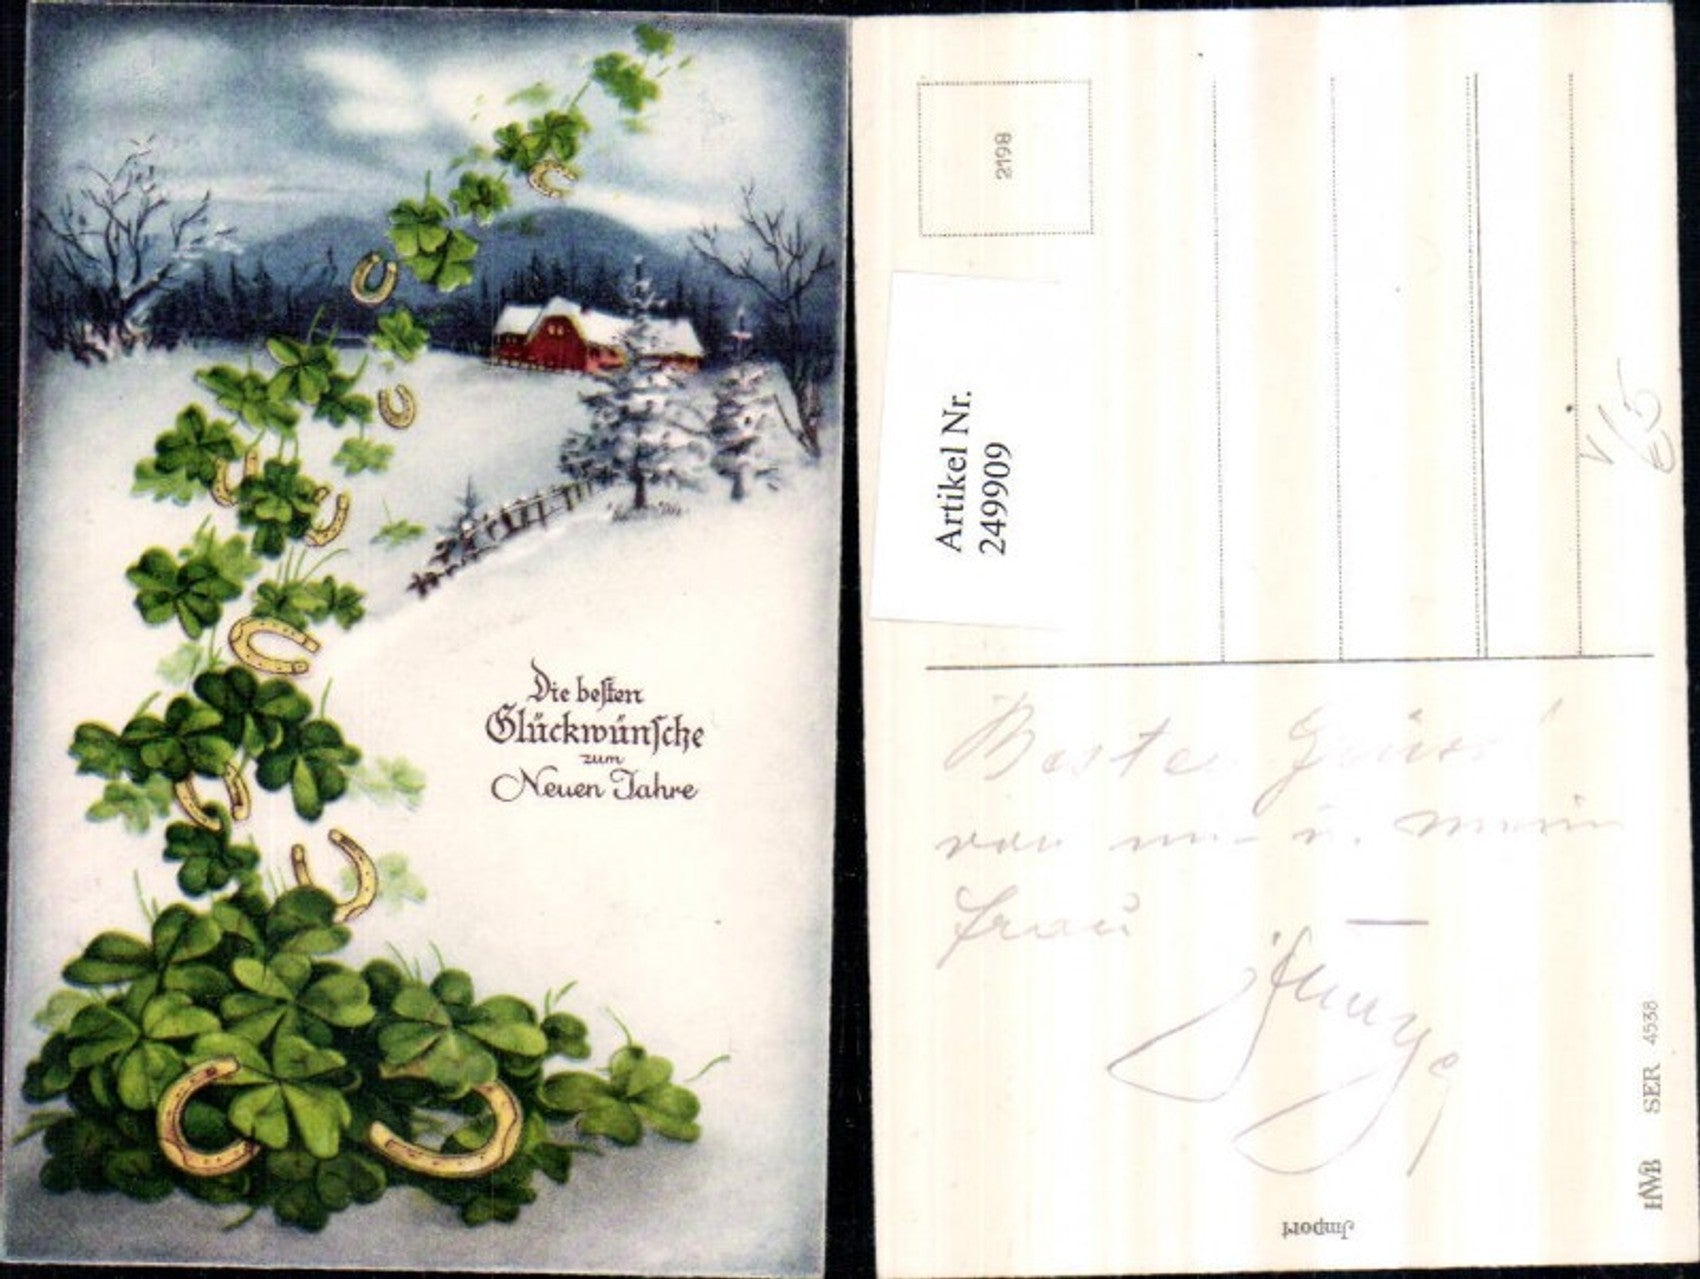 Die besten
Glückwünsche
zum
Neuen Jahre
2198
Artikel Nr.
2499909
Beste Grüsse
von mir u. meiner
Frau
HWB SER 4538
Import